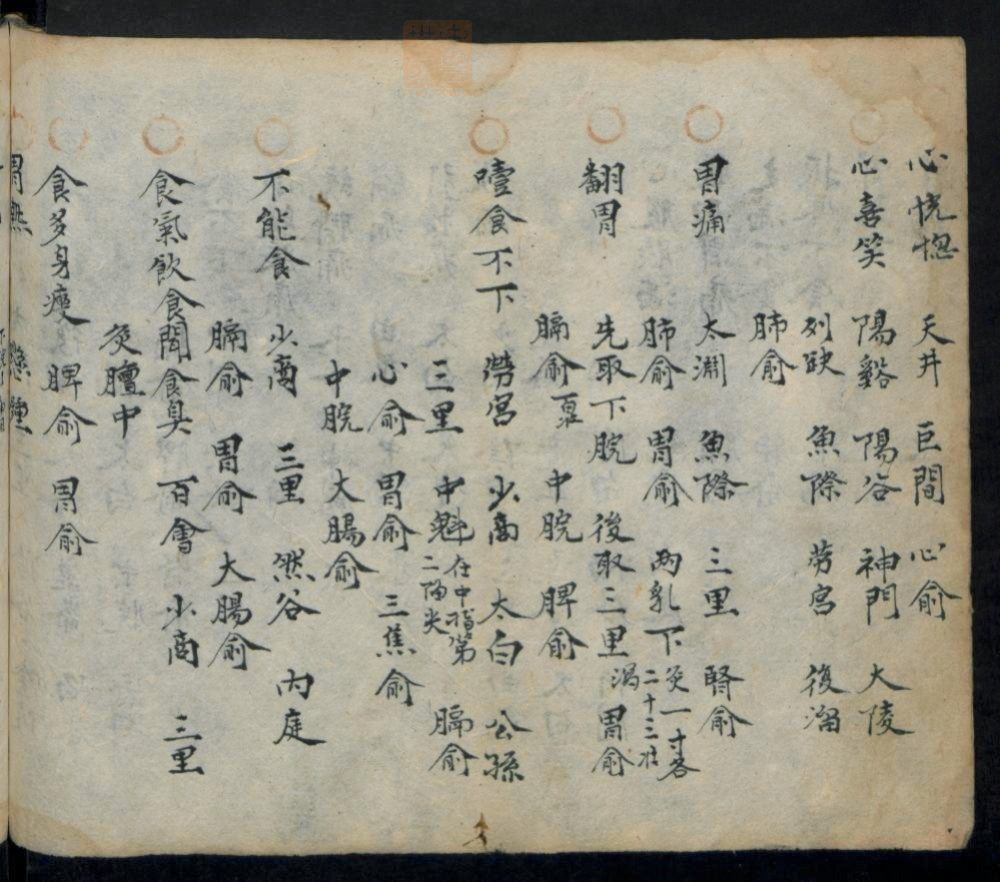 心恍惚 天井 巨間 心俞
心喜笑 陽谿 陽谷 神門 大陵
列缺 魚際 勞宮 復溜
肺俞
胃痛 太淵 魚際 三里 腎俞
肺俞 胃俞 两乳下 灸一寸各二十三壯
翻胃 先取下脘 後取三里 瀉 胃俞
膈俞 中脘 脾俞
噎食不下 勞宮 少商 太白 公孫
三里 中魁 在中指第二節尖 膈俞
心俞 胃俞 三焦俞
中脘 大腸俞
不能食 少商 三里 然谷 内庭
膈俞 胃俞 大腸俞
食氣飲食聞食臭 百會 少商 三里
灸膻中
食多身瘦 脾俞 胃俞
胃熱 懸鐘